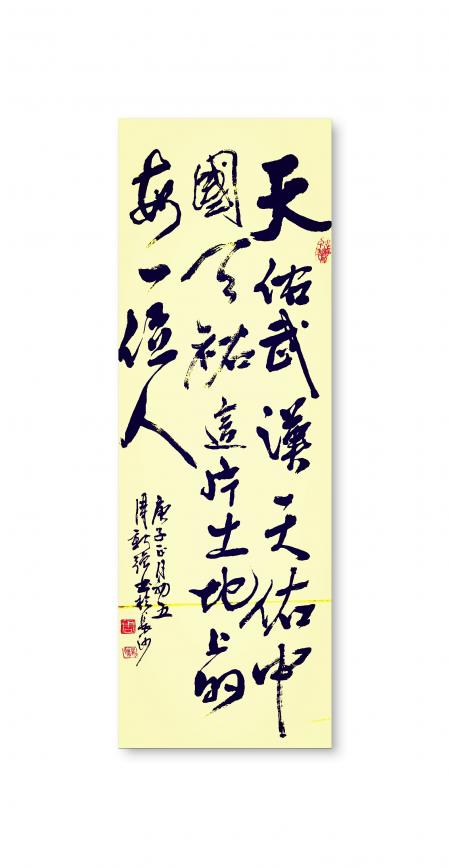 天佑武漢天佑中
國天祐這片土地上的
每一位人
庚子正月初五
周新強書於長沙